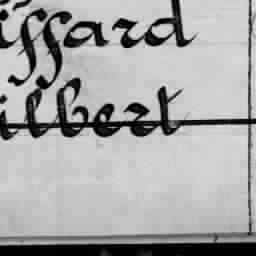 iffard
ilbert